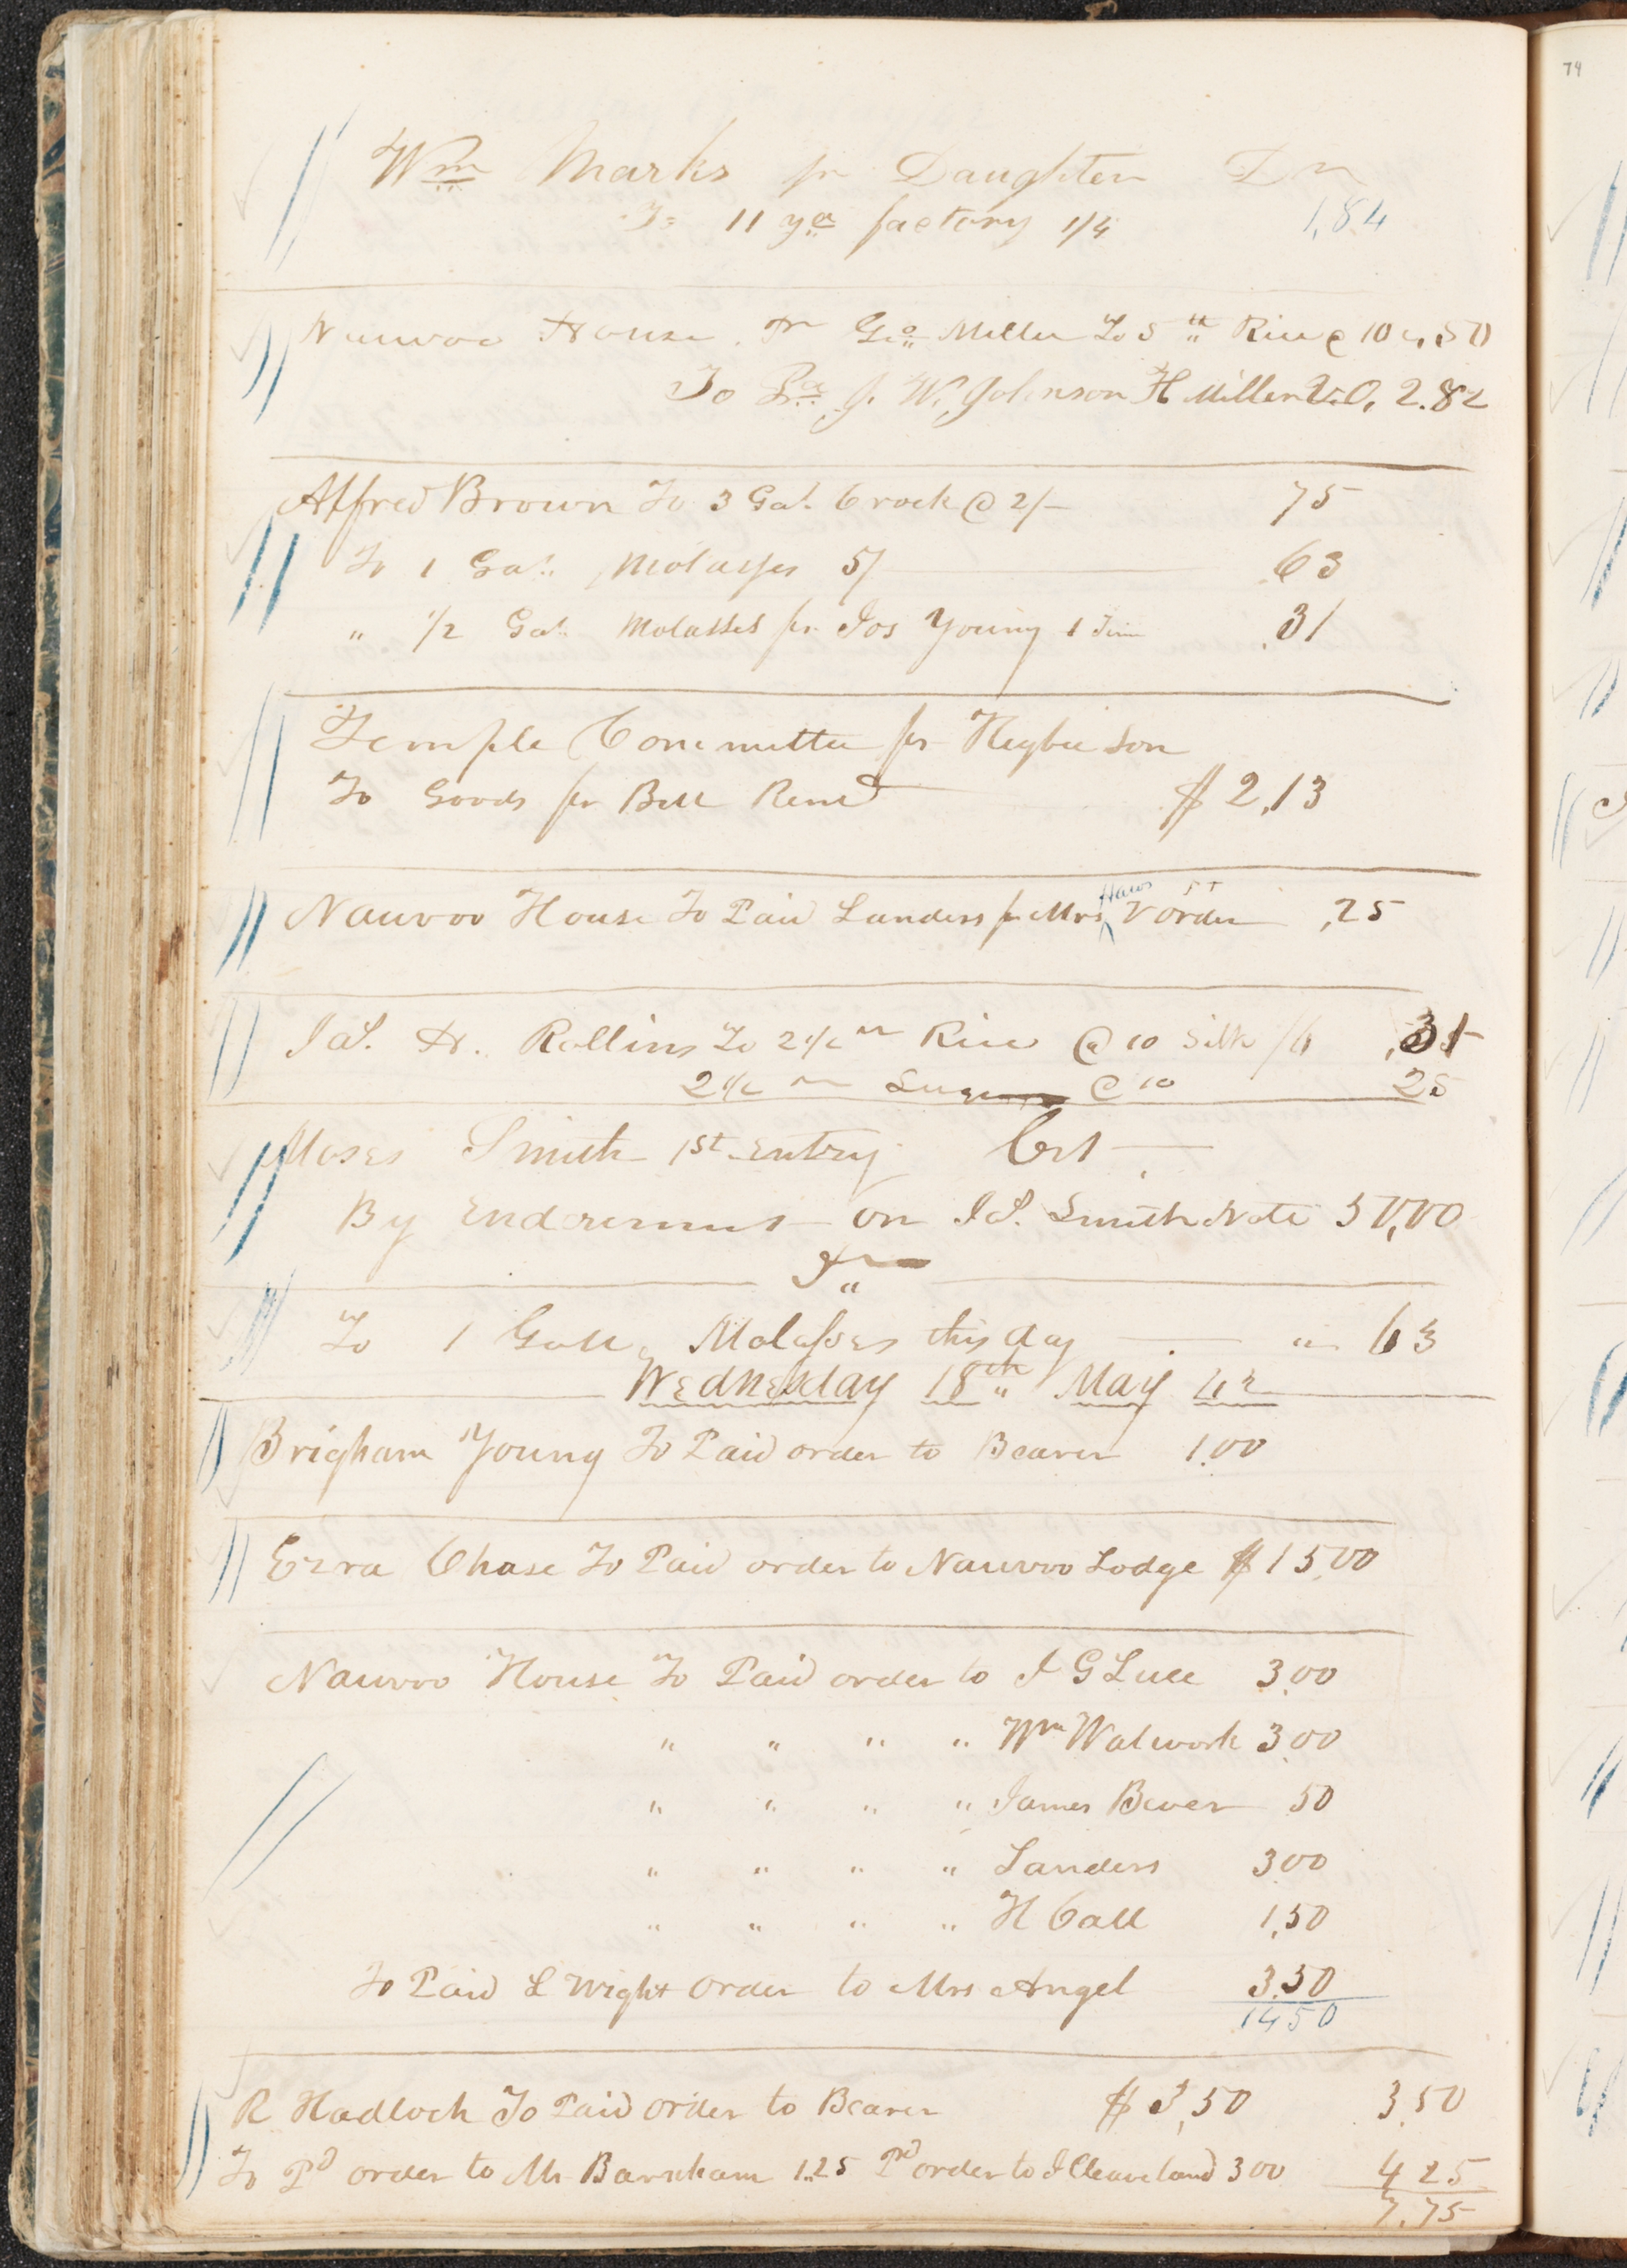 Wm Marks pr Daughter Dr
To 11 yds factory 1/4 1,84
Nauvoo House Dr Geo Miller To 5 lb Rice @ 10 ,50
To Pd J. W. Johnson H Miller 2.82
Alfred Brown To 3 Gal. Crock @ 2/- 75
To 1 Gal. Molasses 5/ .63
" 1/2 Gal. Molasses pr Jos Young 1 Time .31
Temple Committee pr Higbee Son
To Goods pr Bill Rend $ 2,13
Nauvoo House To Paid Landers pr Mrs Haws order ,25
Jas. H. Rollins To 2 1/2 lb Rice @ 10 Silk /6 ,31
2 1/2 lb Sugar @ 10 25
Moses Smith 1st Entry Cr
By Endorsement on J S. Smith Note 50,00
Dr
To 1 Gall. Molasses this day " 63
Wednesday 18th May 42
Brigham Young To Paid order to Bearer 1.00
Ezra Chase To Paid order to Nauvoo Lodge $ 15.00
Nauvoo House To Paid order to J G Luce 3.00
" " " " Wm Walwork 3.00
" " " " James Bever 50
" " " " Landers 3.00
" " " " H Call 1,50
To Paid L Wight Order to Mrs Angel 3.50
14 50
R Hadlock To Paid Order to Bearer $ 3,50 3.50
To Pd order to Mr Barnham 1.25 Pd order to J Cleaveland 3 00 4 25
7.75
74